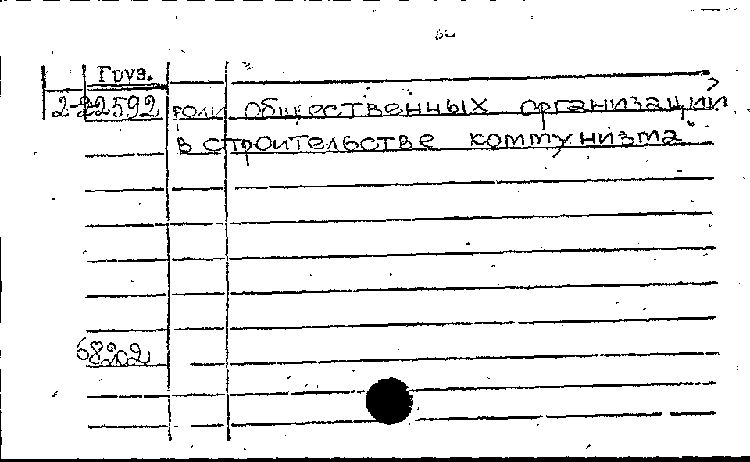 Груз.
2-22592 роли общественных организаций
в строительстве коммунизма"
68202